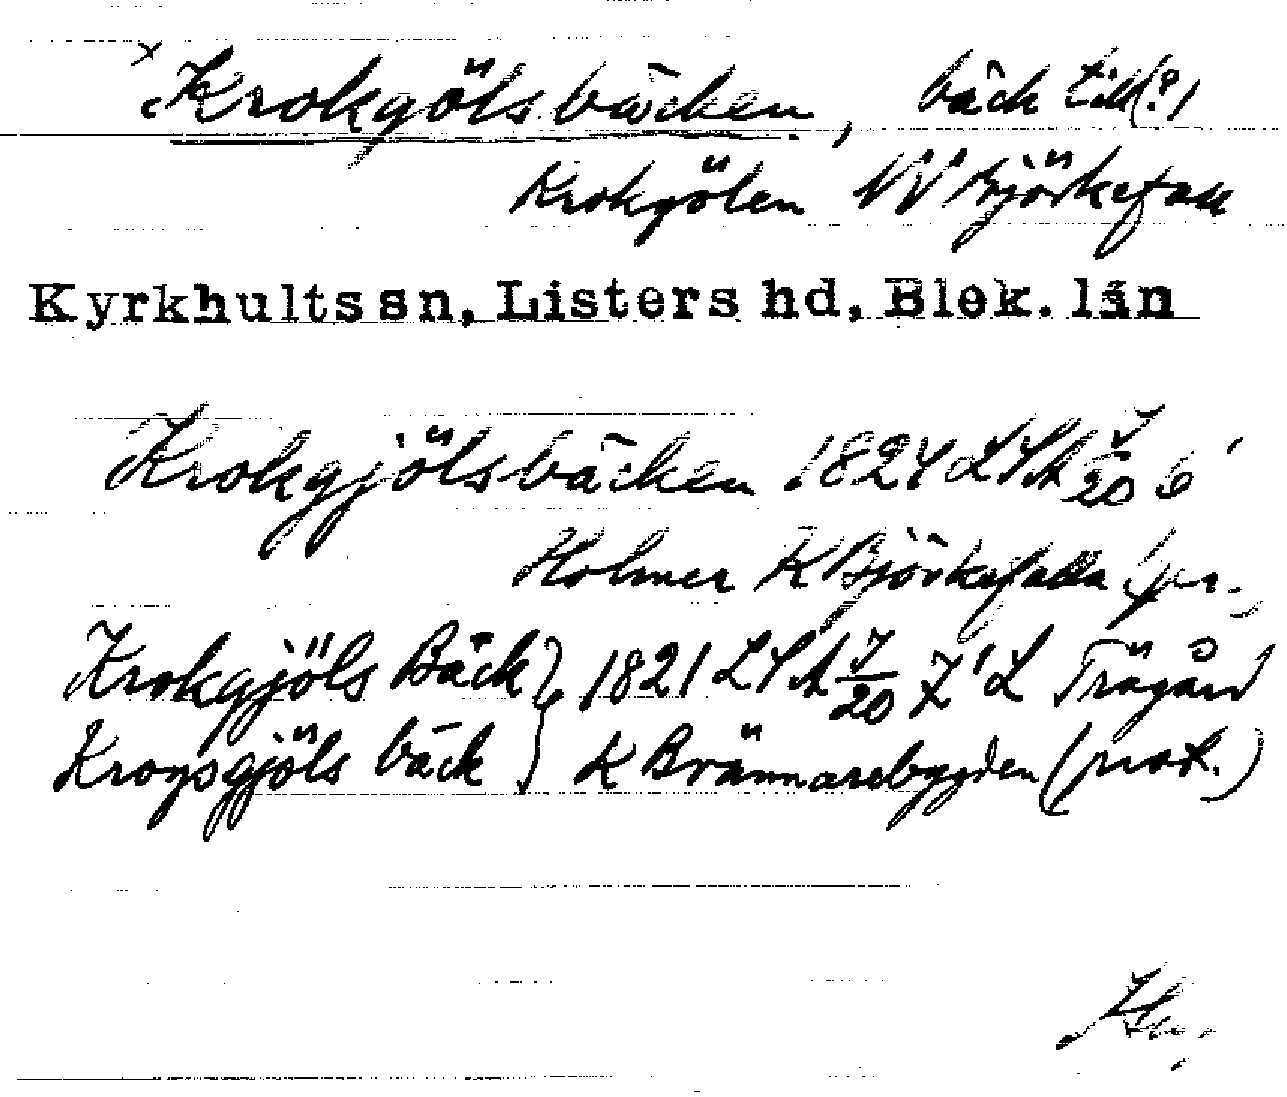 x Krokgölsbäcken, bäck till(?)
Krokgölen NV Björkefall
Kyrkhults sn, Listers hd, Blek. län
Krokgjölsbäcken 1824 LSA 20 6'
Holmer K Björkefalla (pr.)
Krokgjöls Bäck } 1821 LSA 20 7' L Trägård
Kroqsgjöls bäck } K Brännarebygden (prot.)